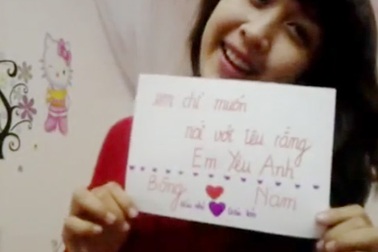 em chỉ muốn
nói với Yêu rằng
Em Yêu Anh
Bống Nam